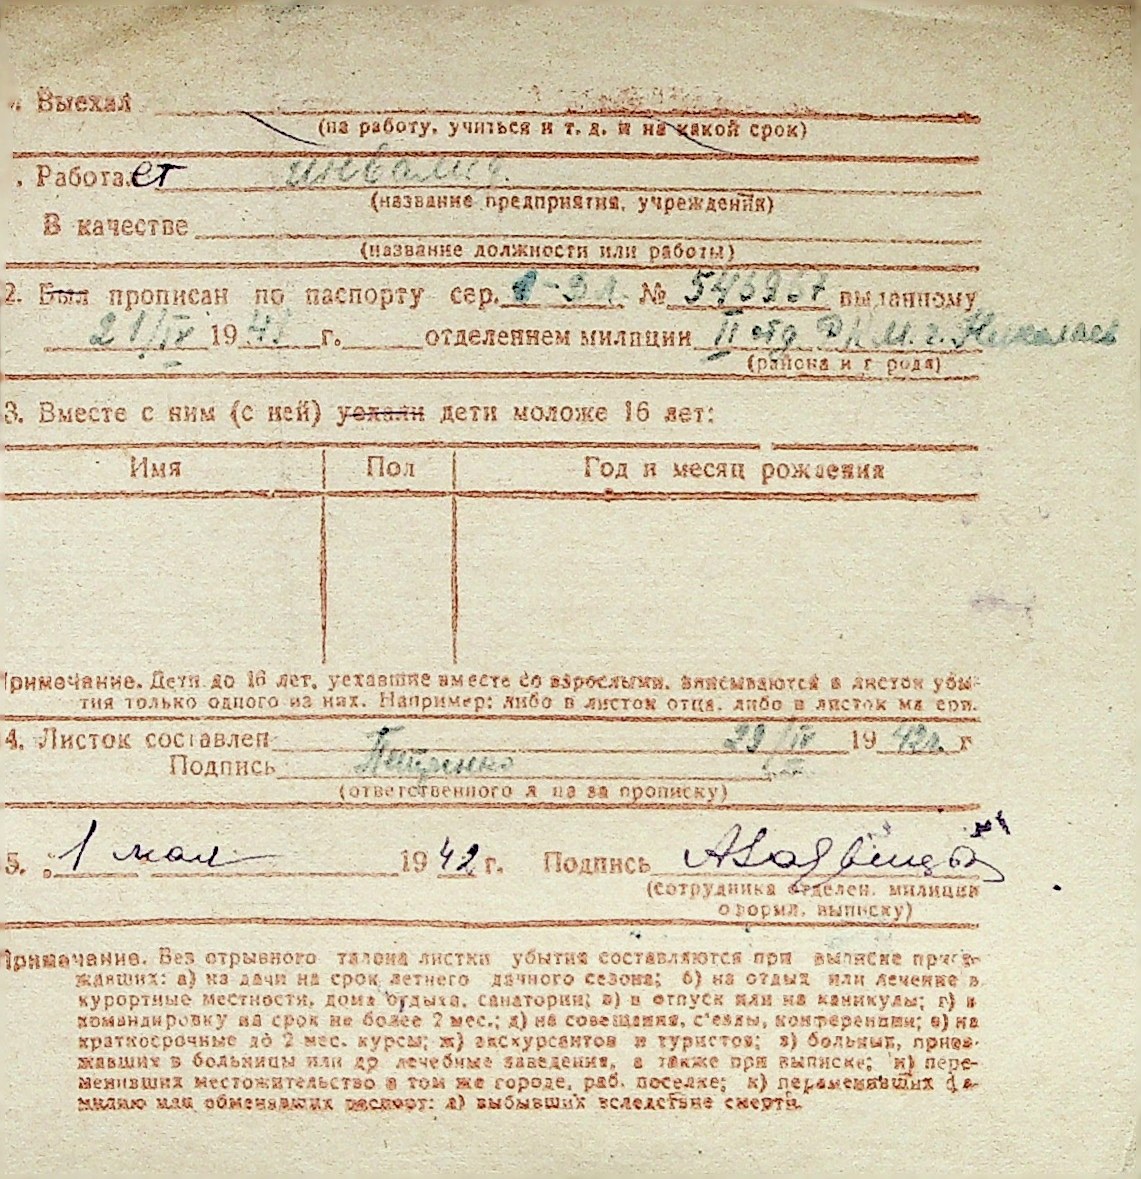 Выехал
(на работу, учиться и т. д. и на какой срок)
Работает инвалид.
(название предприятия, учреждения)
В качестве
(название должности или работы)
2. Был прописан по паспорту сер. № 543967 выданному
21/IV 1941 г. отделением милиции II отд РКМ. г. Николаев
(района и города)
3. Вместе с ним (с ней) уехали дети моложе 16 лет:
Имя Пол Год и месяц рождения
Примечание. Дети до 16 лет, уехавшие вместе со взрослыми, вписываются в листок убы-
тия только одного из них. Например: либо в листок отца, либо в листок матери.
4. Листок составлен 29/IV 1942 г
Подпись Петренко
(ответственного лица за прописку)
5. 1 мая 1942 г. Подпись
(сотрудника отделен. милиции
оформл. выписку)
Примечание. Без отрывного талона листки убытия составляются при выписке приез-
жавших: а) на дачи на срок летнего дачного сезона; б) на отдых или лечение в
курортные местности, дома отдыха, санатории; в) в отпуск или на каникулы; г) в
командировку на срок не более 2 мес.; д) на совещания, с'езды, конференции; е) на
краткосрочные до 2 мес. курсы; ж) экскурсантов и туристов; з) больных, приез-
жавших в больницы или др лечебные заведения, а также при выписке; и) пере-
менивших местожительство в том же городе, раб. поселке; к) переменивших фа-
милию или обменявших паспорт; л) выбывших вследствие смерти.